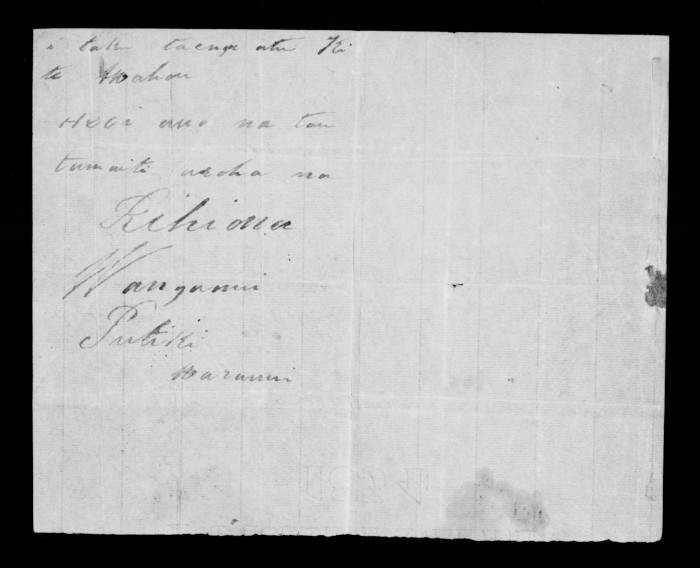 i taku taenga atu Ki
te Wahou
Heoi ano na tau
tamaiti aroha na
Kihiona
Wanganui
Putiki
Waranui